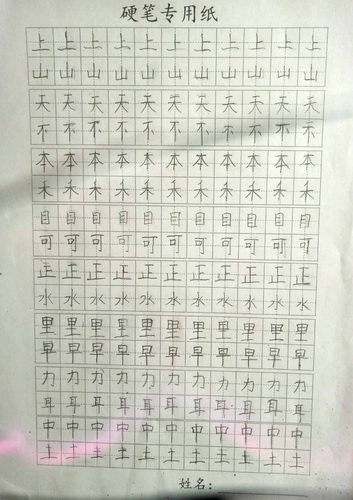 硬笔专用纸
上上上上上上上上上上上
山山山山山山山山山山山
天天天天天天天天天天天
不不不不不不不不不不不
本本本本本本本本本本本
禾禾禾禾禾禾禾禾禾禾禾
目目目目目目目目目目目
可可可可可可可可可可可
正正正正正正正正正正正
水水水水水水水水水水水
里里里里里里里里里里里
早早早早早早早早早早早
力力力力力力力力力力力
耳耳耳耳耳耳耳耳耳耳耳
中中中中中中中中中中中
土土土土土土土土土土土
姓名: